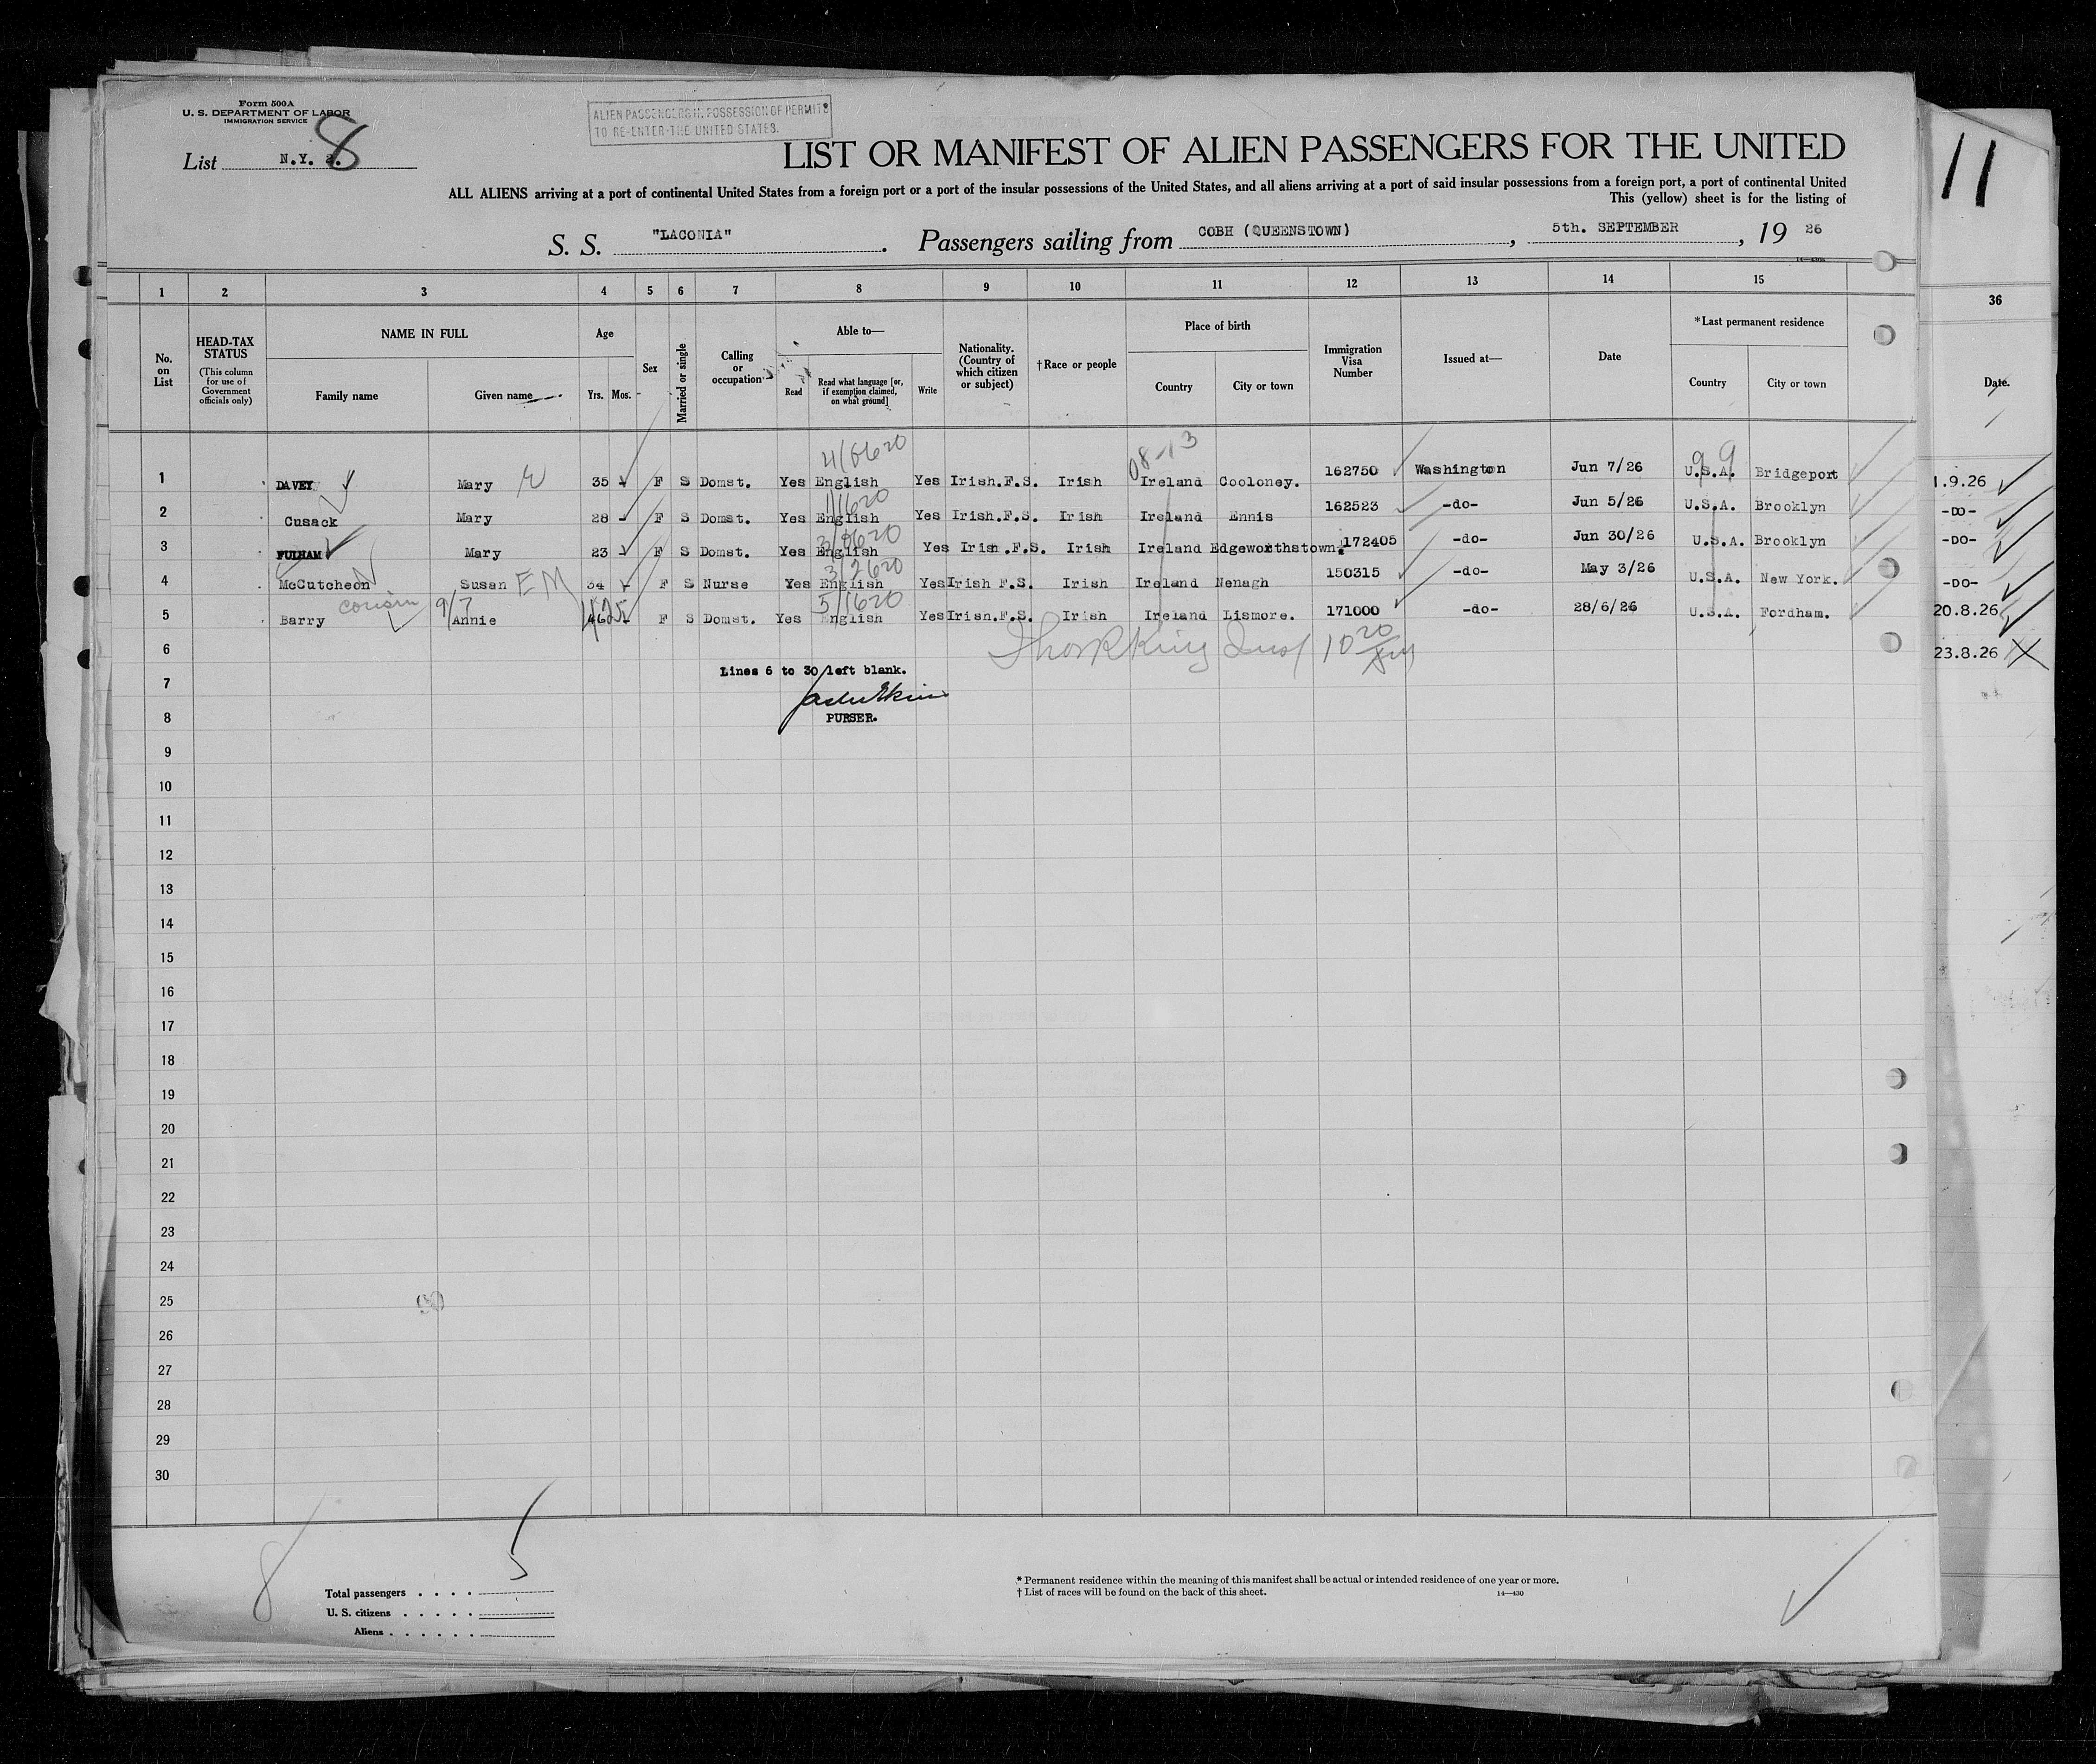 Form 500A
U. S. DEPARTMENT OF LABOR
IMMIGRATION SERVICE
List N.Y. 8
ALIEN PASSENGERS IN POSSESSION OF PERMITS
TO RE-ENTER THE UNITED STATES.
LIST OR MANIFEST OF ALIEN PASSENGERS FOR THE UNITED
ALL ALIENS arriving at a port of continental United States from a foreign port or a port of the insular possessions of the United States, and all aliens arriving at a port of said insular possessions from a foreign port, a port of continental United
This (yellow) sheet is for the listing of
S. S. "LACONIA". Passengers sailing from COBH (QUEENSTOWN), 5th. SEPTEMBER, 19 26
11
1 2 3 4 5 6 7 8 9 10 11 12 13 14 15 36
No. on List
HEAD-TAX STATUS
(This column for use of Government officials only)
NAME IN FULL
Family name Given name
Age
Yrs. Mos.
Sex
Married or single
Calling or occupation
Able to—
Read
Read what language [or, if exemption claimed, on what ground]
Write
Nationality. (Country of which citizen or subject)
†Race or people
Place of birth
Country City or town
Immigration Visa Number
Issued at—
Date
*Last permanent residence
Country City or town
Date.
08-13
99
1 DAVEY Mary 35 F S Domst. Yes English Yes Irish.F.S. Irish Ireland Cooloney. 162750 Washington Jun 7/26 U.S.A. Bridgeport 1.9.26
2 Cusack Mary 28 F S Domst. Yes English Yes Irish.F.S. Irish Ireland Ennis 162523 -do- Jun 5/26 U.S.A. Brooklyn -DO-
3 FULHAM Mary 23 F S Domst. Yes English Yes Irish.F.S. Irish Ireland Edgeworthstown. 172405 -do- Jun 30/26 U.S.A. Brooklyn -DO-
4 McCutcheon Susan E M 34 F S Nurse Yes English Yes Irish F.S. Irish Ireland Nenagh 150315 -do- May 3/26 U.S.A. New York. -DO-
cousin 9/7
5 Barry Annie F S Domst. Yes English Yes Irish.F.S. Irish Ireland Lismore. 171000 -do- 28/6/26 U.S.A. Fordham. 20.8.26
6 23.8.26
Lines 6 to 30 left blank.
7
PURSER.
8
9
10
11
12
13
14
15
16
17
18
19
20
21
22
23
24
25
26
27
28
29
30
8
Total passengers . . . . 5
U. S. citizens . . . . .
Aliens . . . . . .
* Permanent residence within the meaning of this manifest shall be actual or intended residence of one year or more.
† List of races will be found on the back of this sheet.
14—430